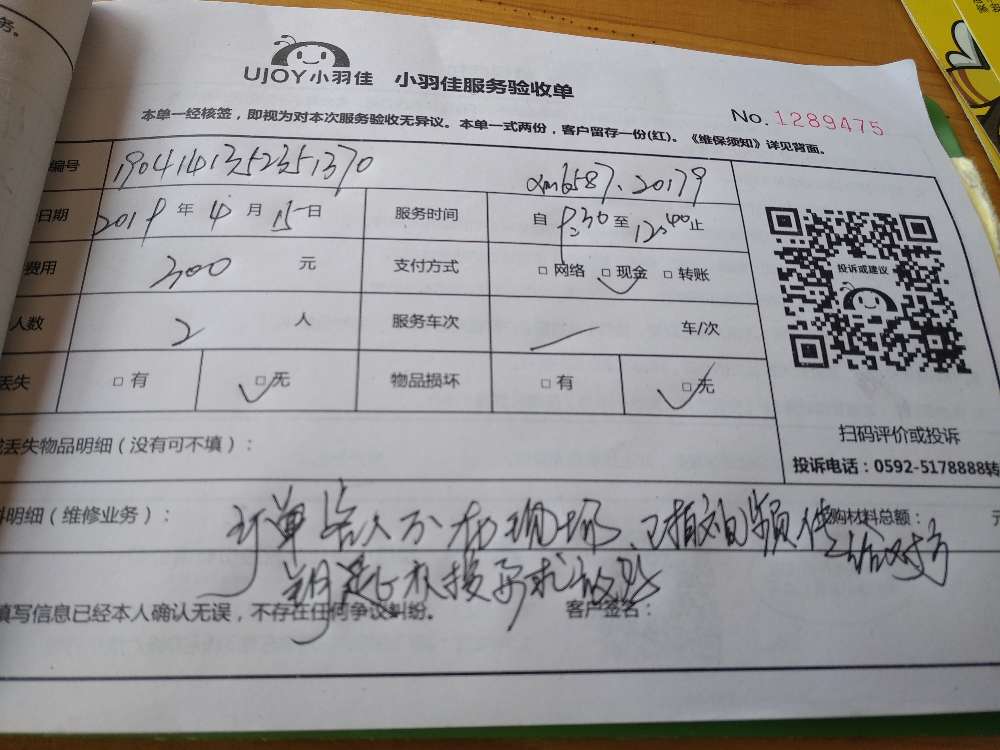 务。
UJOY小羽佳 小羽佳服务验收单
本单一经核签，即视为对本次服务验收无异议。本单一式两份，客户留存一份(红)。《维保须知》详见背面。
No. 1289475
编号 1904141352351370 xm6587.20179
日期 2019 年 4 月 15 日 服务时间 自 8:30 至 12:00 止
费用 300 元 支付方式 □ 网络 □ 现金 □ 转账
人数 2 人 服务车次 一 车/次
丢失 □ 有 □ 无 物品损坏 □ 有 □ 无
投诉或建议
扫码评价或投诉
投诉电话：0592-5178888转
丢失物品明细（没有可不填）：
料明细（维修业务）： 购材料总额： 元
订单客人不在现场、已拍视频传给对方
填写信息已经本人确认无误，不存在任何争议纠纷。 客户签名：